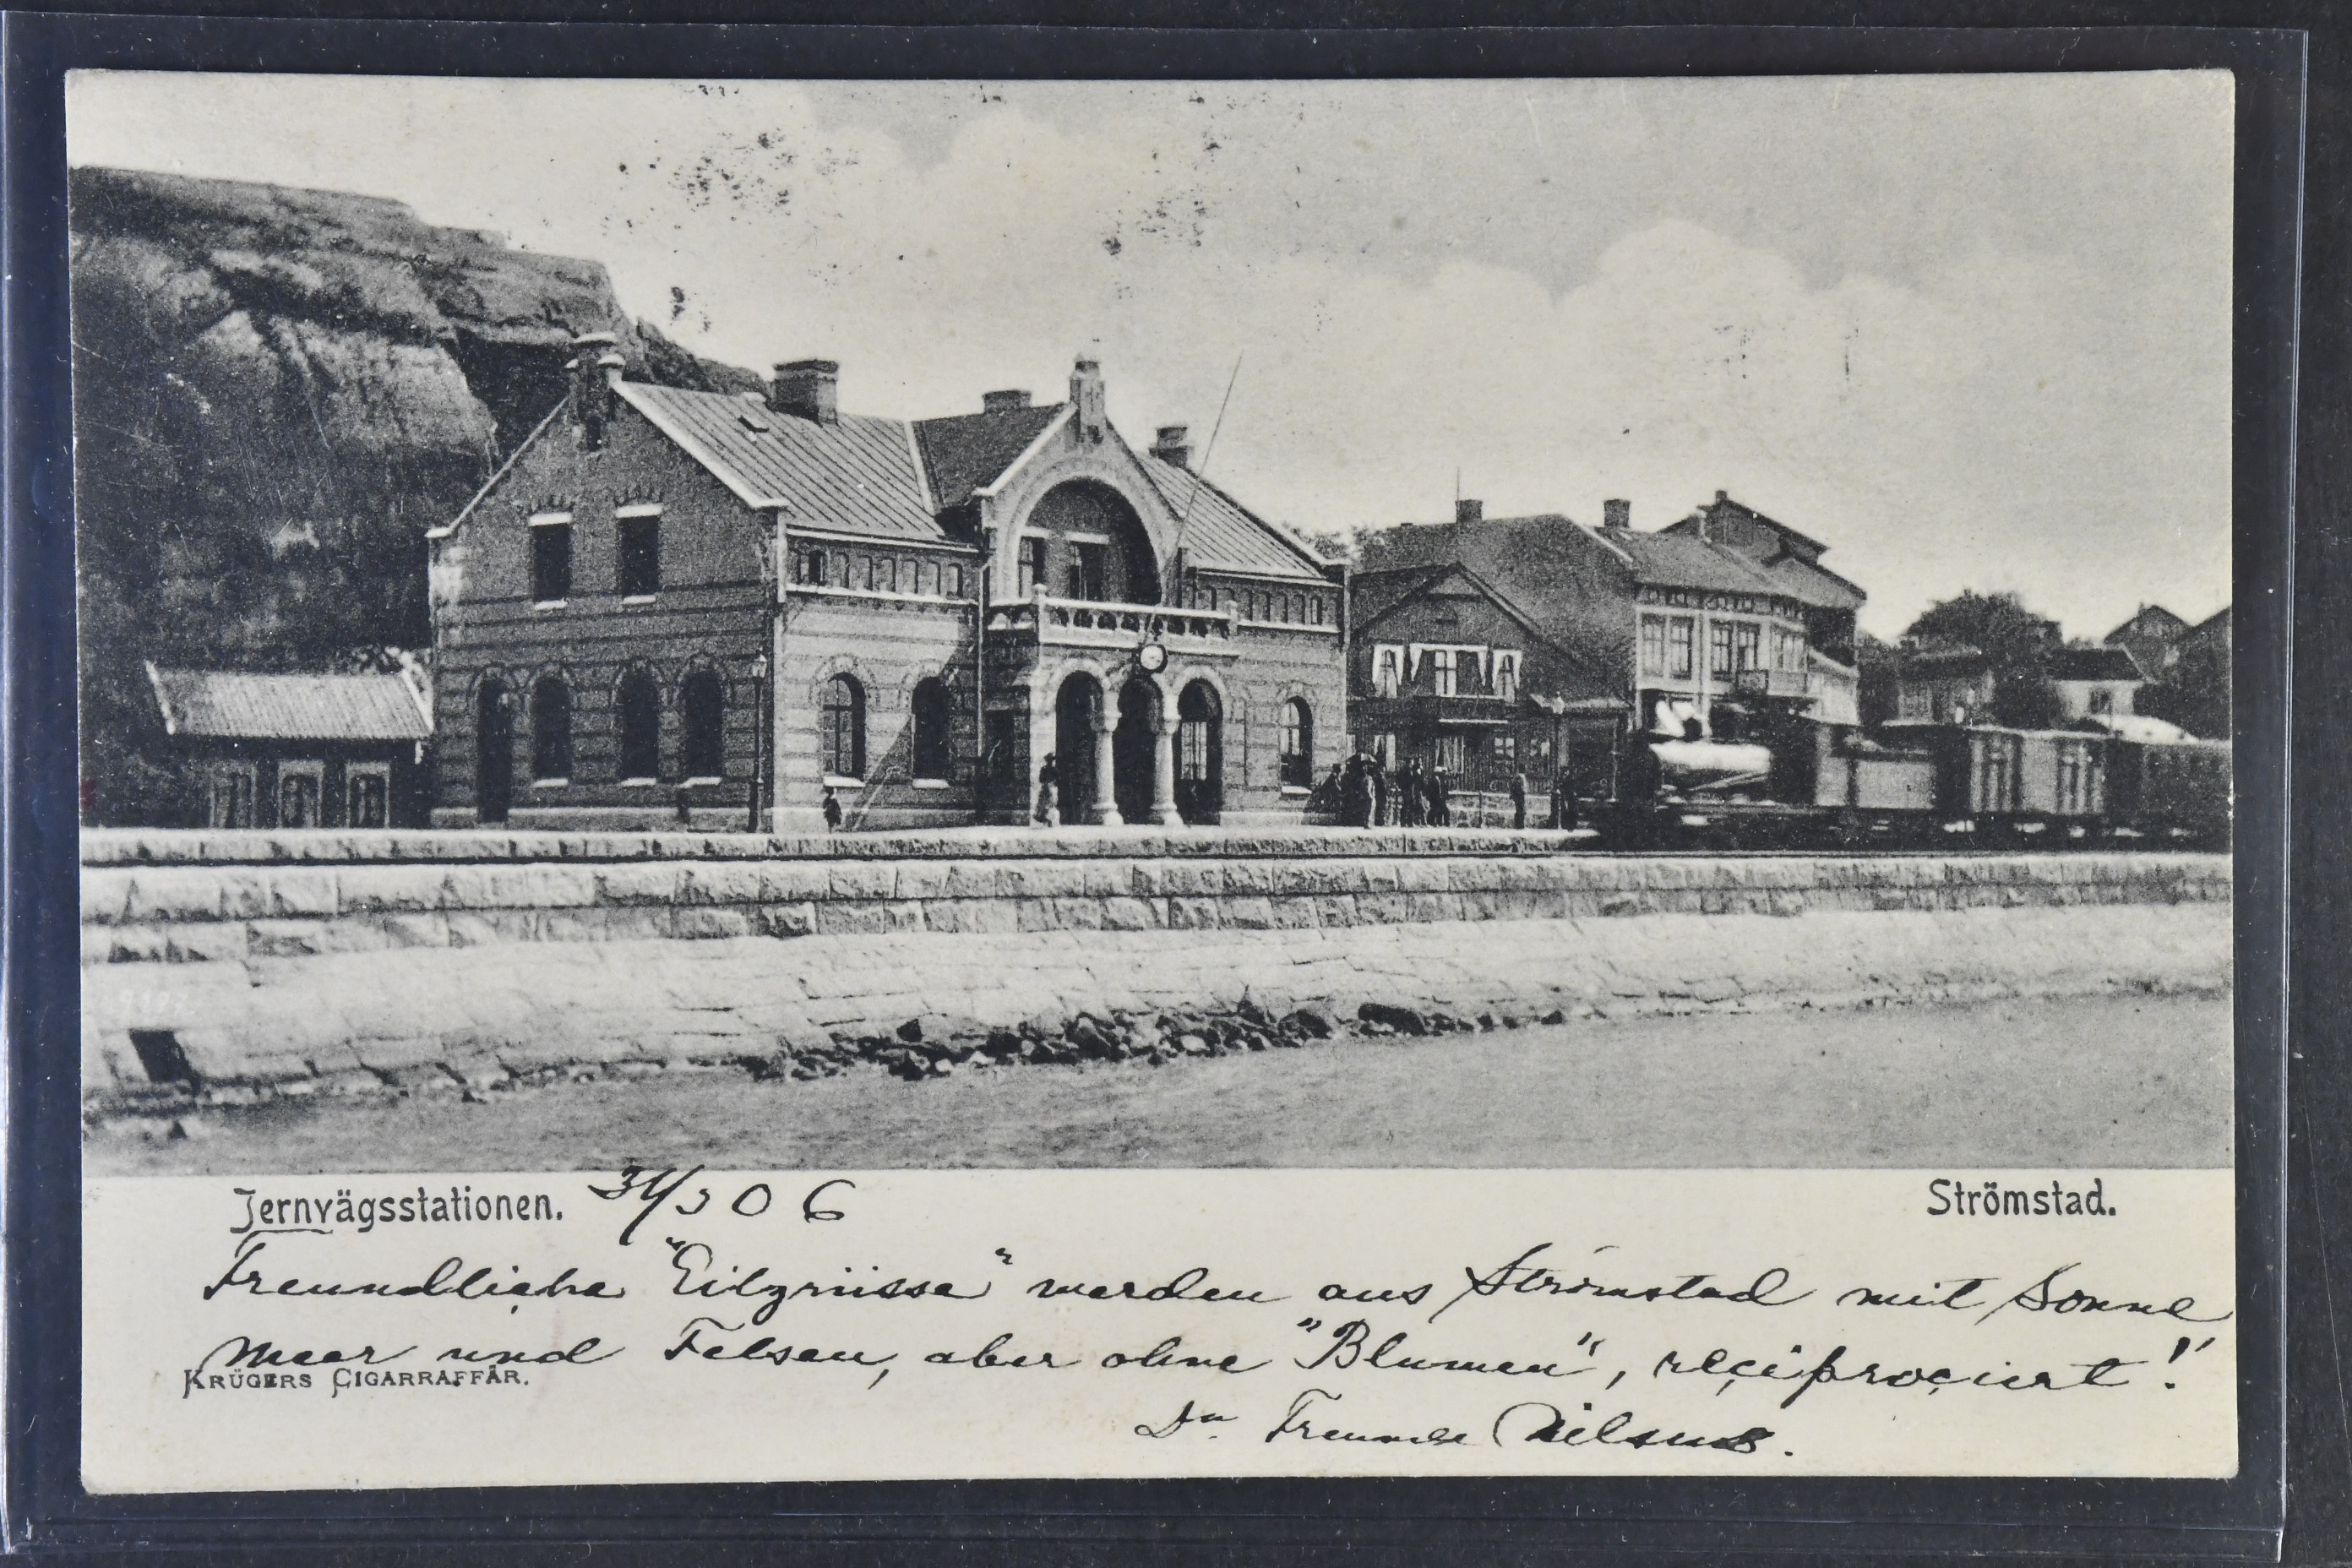 Jernvägsstationen. 31/3 06
Strömstad.
Freundliche "Eilgrüsse" werden aus Strömstad mit Sonne
Meer und Felsen, aber ohne "Blumen", reciprociert!
KRÜGERS CIGARRAFFÄR.
Freunde